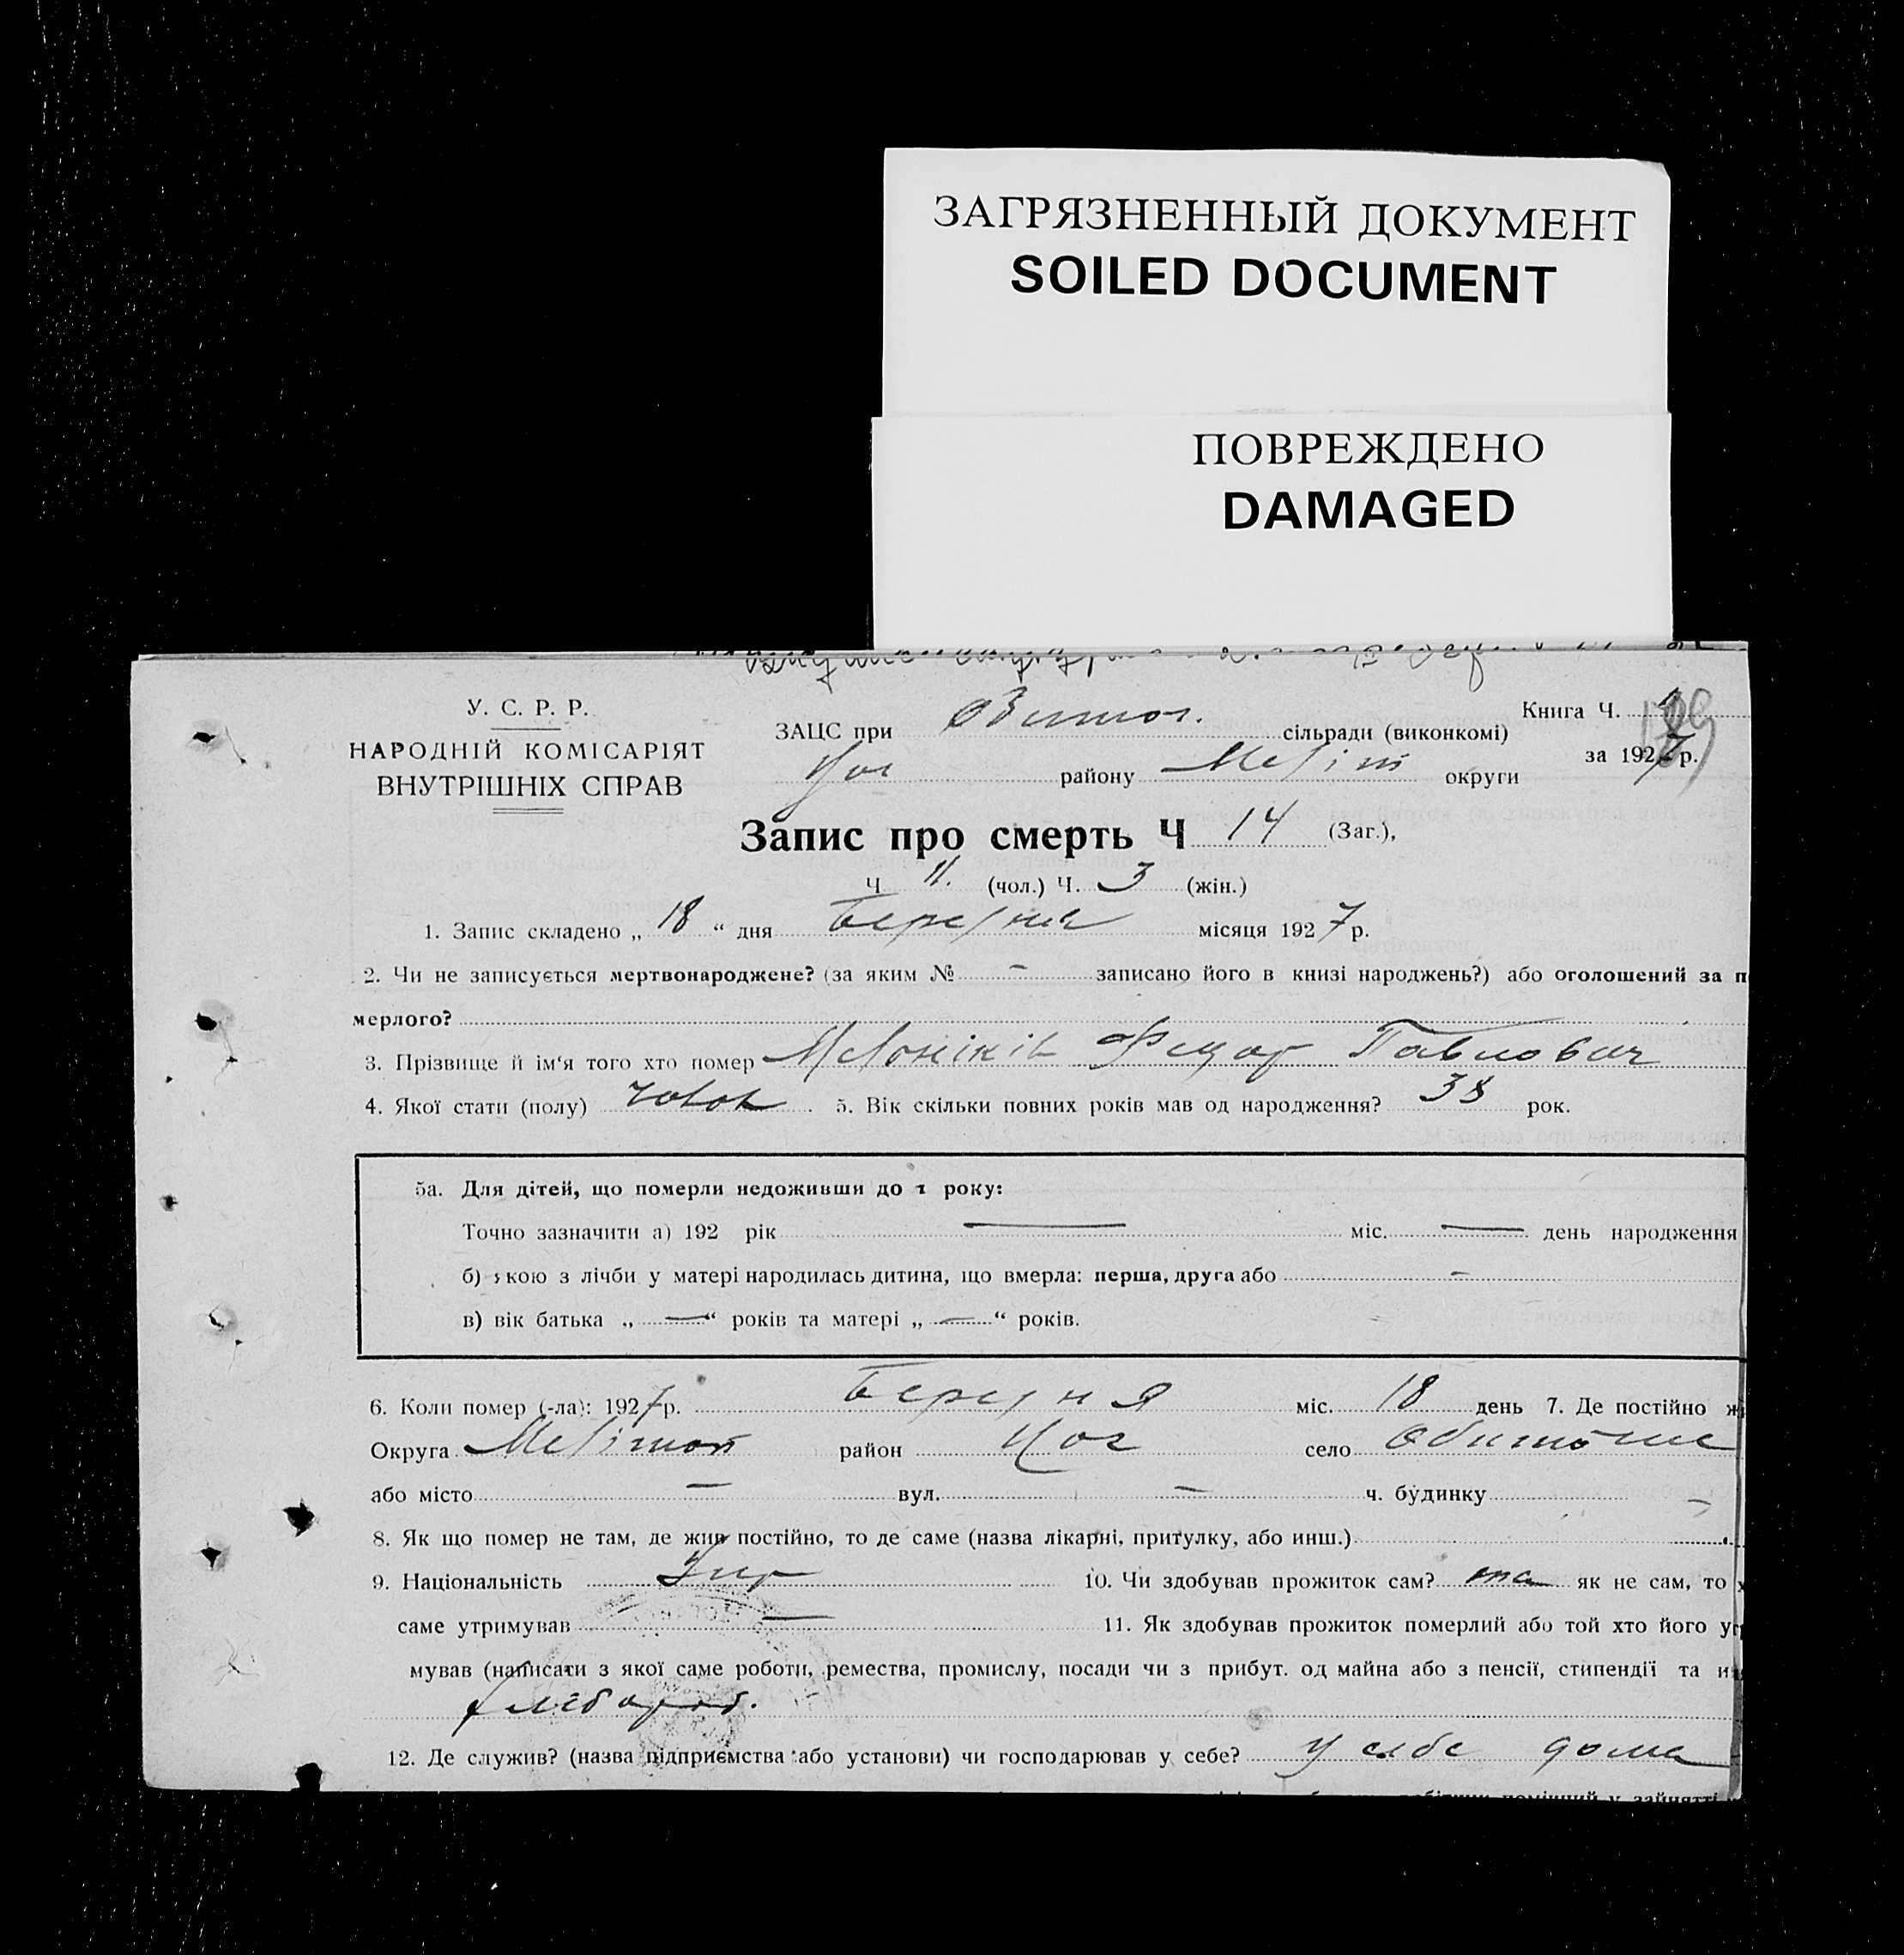 ЗАГРЯЗНЕННЫЙ ДОКУМЕНТ
SOILED DOCUMENT
ПОВРЕЖДЕНО
DAMAGED
У. С. Р. Р.
НАРОДНІЙ КОМІСАРІЯТ
ВНУТРІШНІХ СПРАВ
Книга Ч.
за 1927 р.
ЗАЦС при сільради (виконкомі)
району Меліт округи
Запис про смерть Ч 14 (Заг.),
Ч 11. (чол.) Ч. 3 (жін.)
1. Запис складено „ 18 “ дня Березня місяця 1927 р.
2. Чи не записується мертвонароджене? (за яким № - записано його в книзі народжень?) або оголошений за п
мерлого?
3. Прізвище й ім‘я того хто помер Павлович
4. Якої стати (полу) чолов. 5. Вік скільки повних років мав од народження? 38 рок.
5а. Для дітей, що померли недоживши до 1 року:
Точно зазначити а) 192 рік — міс. — день народження
б) якою з лічби у матері народилась дитина, що вмерла: перша, друга або -
в) вік батька „ — “ років та матері „ — “ років.
6. Коли помер (-ла): 1927 р. Березня міс. 18 день 7. Де постійно ж
Округа Меліт район село
або місто — вул. — ч. будинку —
8. Як що помер не там, де жив постійно, то де саме (назва лікарні, притулку, або инш.)
9. Національність Укр 10. Чи здобував прожиток сам? як не сам, то х
саме утримував — 11. Як здобував прожиток померлий або той хто його ут
мував (написати з якої саме роботи, ремества, промислу, посади чи з прибут. од майна або з пенсії, стипендії та и
хлебороб.
12. Де служив? (назва підприємства або установи) чи господарював у себе? у себе дома